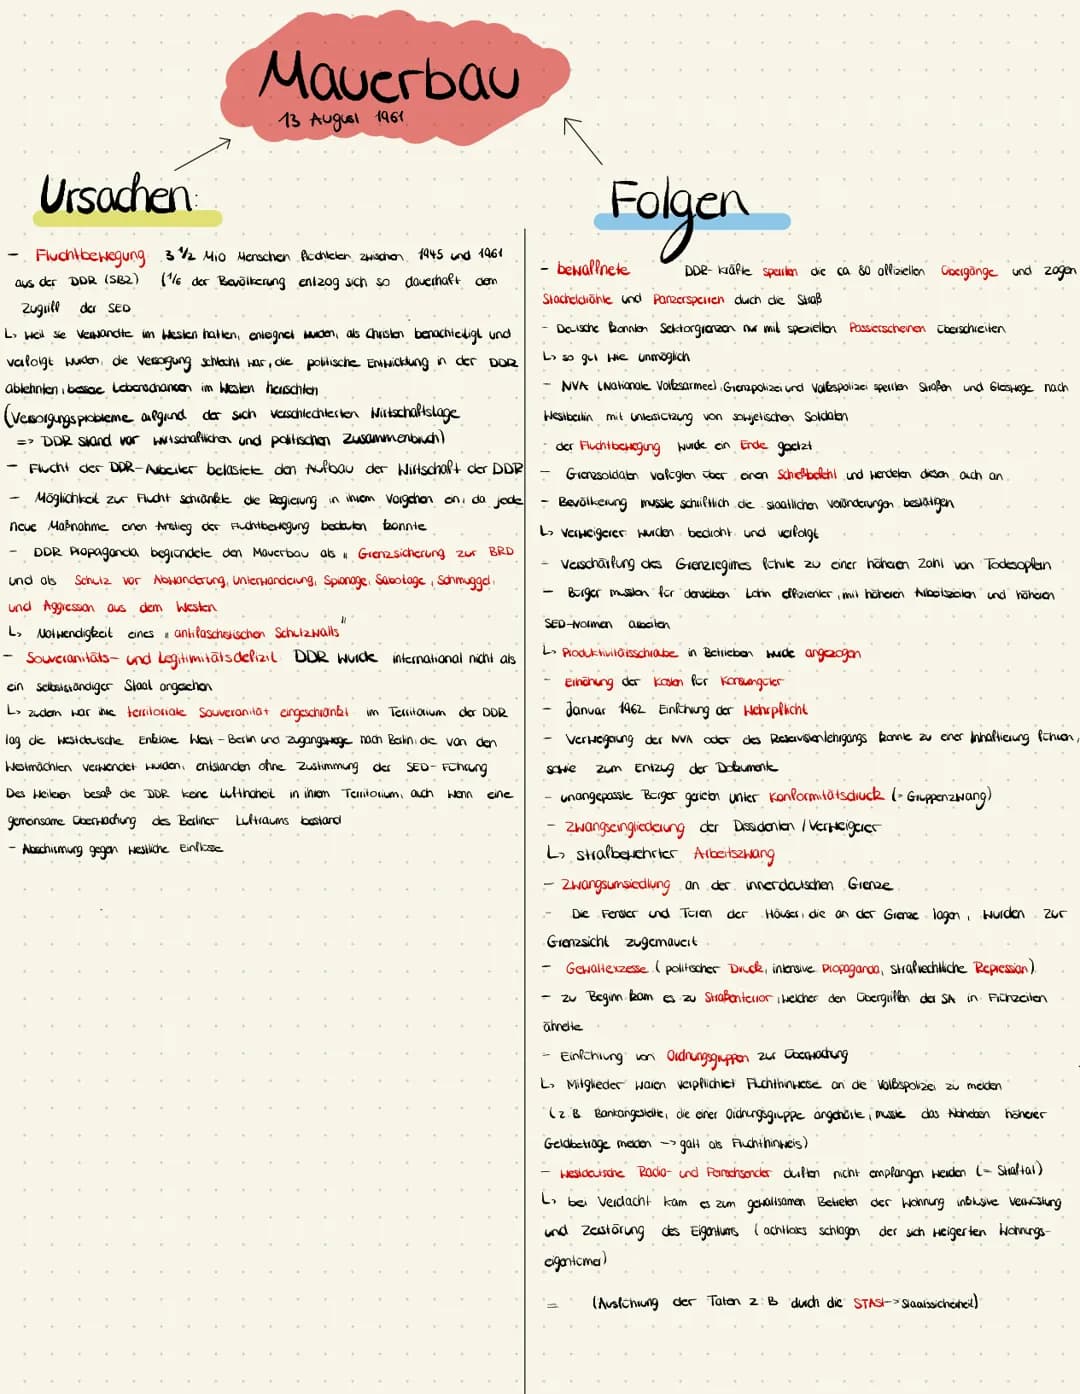 Mauerbau
13 August 1961
Ursachen:
- Fluchtbewegung 3 1/2 Mio Menschen flüchteten zwischen 1945 und 1961
aus der DDR (SBZ) (1/6 der Bevölkerung entzog sich so dauerhaft dem
Zugriff der SED
↳ weil sie Verwandte im Westen hatten, enteignet wurden, als Christen benachteiligt und
verfolgt wurden, die Versorgung schlecht war, die politische Entwicklung in der DDR
ablehnten, bessere Lebenschancen im Westen herrschten
(Versorgungsprobleme aufgrund der sich verschlechterten Wirtschaftslage
=> DDR stand vor wirtschaftlichen und politischen Zusammenbruch)
- Flucht der DDR-Arbeiter belastete den Aufbau der Wirtschaft der DDR
- Möglichkeit zur Flucht schränkte die Regierung in ihrem Vorgehen ein, da jede
neue Maßnahme einen Anstieg der Fluchtbewegung bedeuten konnte
- DDR Propaganda begründete den Mauerbau als "Grenzsicherung zur BRD
und als Schutz vor Abwanderung, Unterwanderung, Spionage, Sabotage, Schmuggel
und Aggression aus dem Westen
↳ Notwendigkeit eines "antifaschistischen Schutzwalls"
- Souveränitäts- und Legitimitätsdefizit DDR wurde international nicht als
ein selbstständiger Staat angesehen
↳ zudem war ihre territoriale Souveränität eingeschränkt im Territorium der DDR
lag die westdeutsche Enklave West-Berlin und Zugangswege nach Berlin, die von den
Westmächten verwendet wurden, entstanden ohne Zustimmung der SED-Führung
Des Weiteren besaß die DDR keine Lufthoheit in ihrem Territorium, auch wenn eine
gemeinsame Überwachung des Berliner Luftraums bestand
- Abschirmung gegen westliche Einflüsse
Folgen
- bewaffnete DDR-Kräfte sperrten die ca 80 offiziellen Übergänge und zogen
Stacheldrähte und Panzersperren durch die Straß
- Deutsche konnten Sektorgrenzen nur mit speziellen Passierscheinen überschreiten
↳ so gut wie unmöglich
- NVA (Nationale Volksarmee), Grenzpolizei und Volkspolizei sperrten Straßen und Gleiswege nach
Westberlin mit Unterstützung von sowjetischen Soldaten
- der Fluchtbewegung wurde ein Ende gesetzt
- Grenzsoldaten verfügten über einen Schießbefehl und wendeten diesen auch an
- Bevölkerung musste schriftlich die staatlichen Veränderungen bestätigen
↳ Verweigerer wurden bedroht und verfolgt
- Verschärfung des Grenzregimes führte zu einer höheren Zahl von Todesopfern
- Bürger mussten für denselben Lohn effizienter, mit höheren Arbeitszeiten und höheren
SED-Normen arbeiten
↳ Produktivitätsschraube in Betrieben wurde angezogen
- Erhöhung der Kosten für Konsumgüter
- Januar 1962 Einführung der Wehrpflicht
- Verweigerung der NVA oder des Reservistenlehrgangs konnte zu einer Inhaftierung führen,
sowie zum Entzug der Dokumente
- unangepasste Bürger gerieten unter Konformitätsdruck (= Gruppenzwang)
- Zwangseingliederung der Dissidenten / Verweigerer
↳ strafbewehrter Arbeitszwang
- Zwangsumsiedlung an der innerdeutschen Grenze
- Die Fenster und Türen der Häuser, die an der Grenze lagen, wurden zur
Grenzsicht zugemauert
- Gewaltexzesse (politischer Druck, intensive Propaganda, strafrechtliche Repression)
- zu Beginn kam es zu Straßenterror, welcher den Übergriffen der SA in Frühzeiten
ähnelte
- Einführung von Ordnungsgruppen zur Überwachung
↳ Mitglieder waren verpflichtet Fluchthinweise an die Volkspolizei zu melden
(z.B Bankangestellte, die einer Ordnungsgruppe angehörte, musste das Abheben höherer
Geldbeträge melden -> galt als Fluchthinweis)
- westdeutsche Radio- und Fernsehsender durften nicht empfangen werden (= Straftat)
↳ bei Verdacht kam es zum gewaltsamen Betreten der Wohnung inklusive Verwüstung
und Zerstörung des Eigentums (achtloses schlagen der sich weigerten Wohnungs-
eigentümer)
= (Ausführung der Taten z.B durch die STASI -> Staatssicherheit)